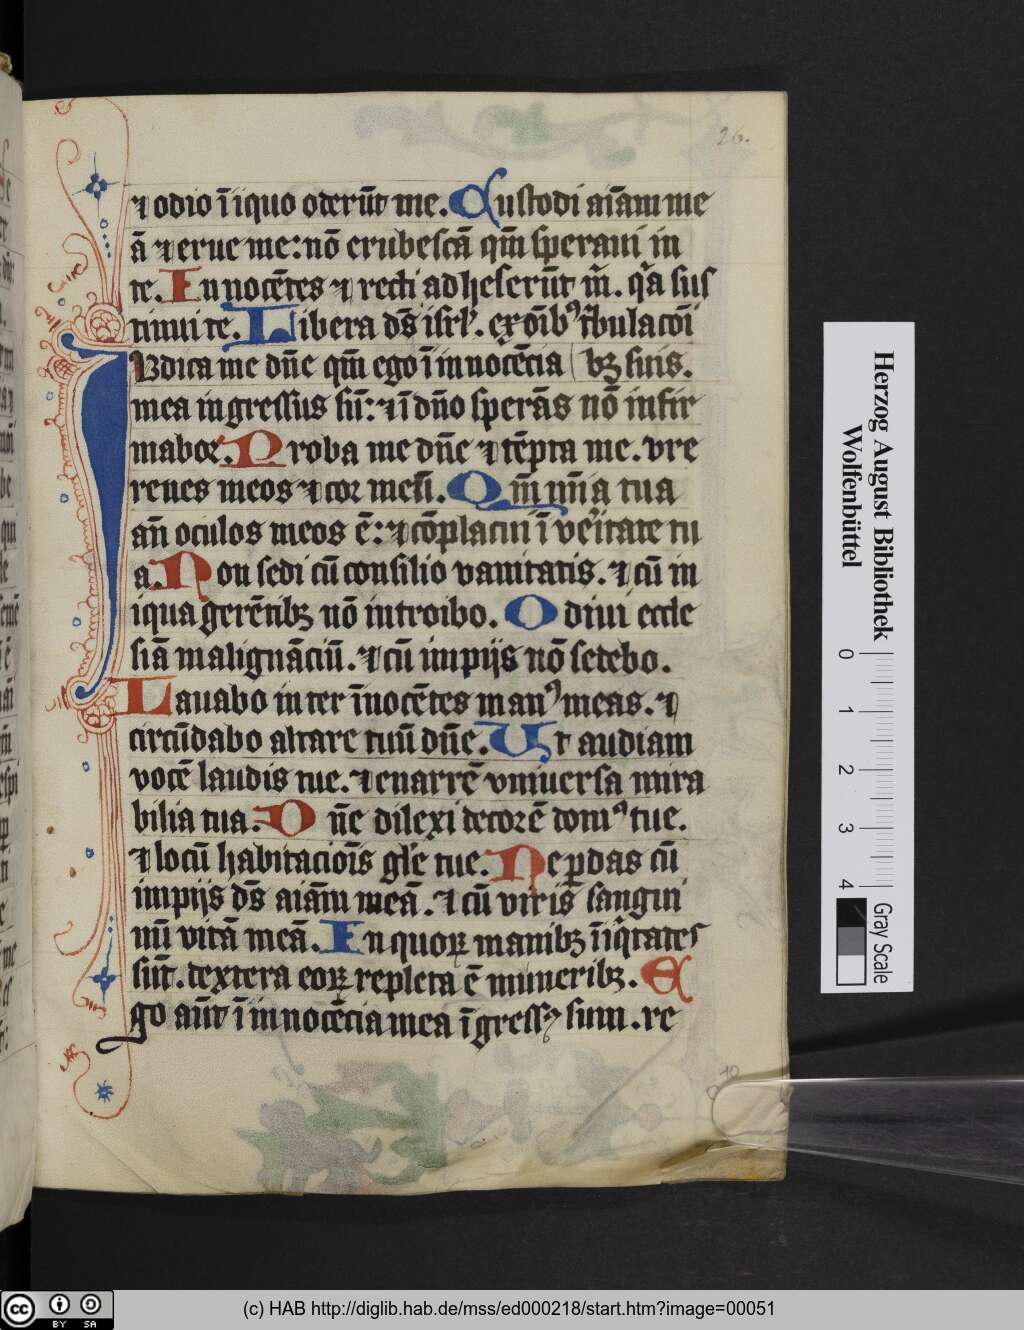 26.
⁊ odio īiquo oderūt me. Custodi aīam me
ā ⁊ erue me: nō erubescā qm̄ speraui in
te. Innocētes ⁊ recti adheserūt m̄. qa sus
tinui te. Libera ds̄ isrl'. ex oīb9 tbulacōi
Vdica me dn̄e qm̄ ego ī innocētia bꝫ suis.
mea ingressus sū: ⁊ ī dn̄o sperās nō infir
mabor. Proba me dn̄e ⁊ tēpta me. vre
renes meos ⁊ cor meū. Qm̄ mīa tua
an̄ oculos meos ē: ⁊ cōplacui ī veritate tu
a. Non sedi cū consilio vanitatis. ⁊ cū in
iqua gerētibꝫ nō introibo. Odiui eccle
siā malignāciū. ⁊ cū impijs nō sedebo.
Lauabo inter īnocētes man9 meas. ⁊
circūdabo altare tuū dn̄e. Ut audiam
vocē laudis tue. ⁊ enarrē vniuersa mira
bilia tua. Dn̄e dilexi decorē dom9 tue.
⁊ locū habitaciōis gl'e tue. Ne ꝑdas cū
impijs ds̄ aiām meā. ⁊ cū viris sangui
nū vitā meā. In quoꝝ manibꝫ īiqtates
sūt. dextera eoꝝ repleta ē muneribꝫ. E
go aūt ī innocētia mea īgressꝰ sum. re
10
Herzog August Bibliothek
Wolfenbüttel
0 1 2 3 4
Gray Scale
cc BY SA
(c) HAB http://diglib.hab.de/mss/ed000218/start.htm?image=00051